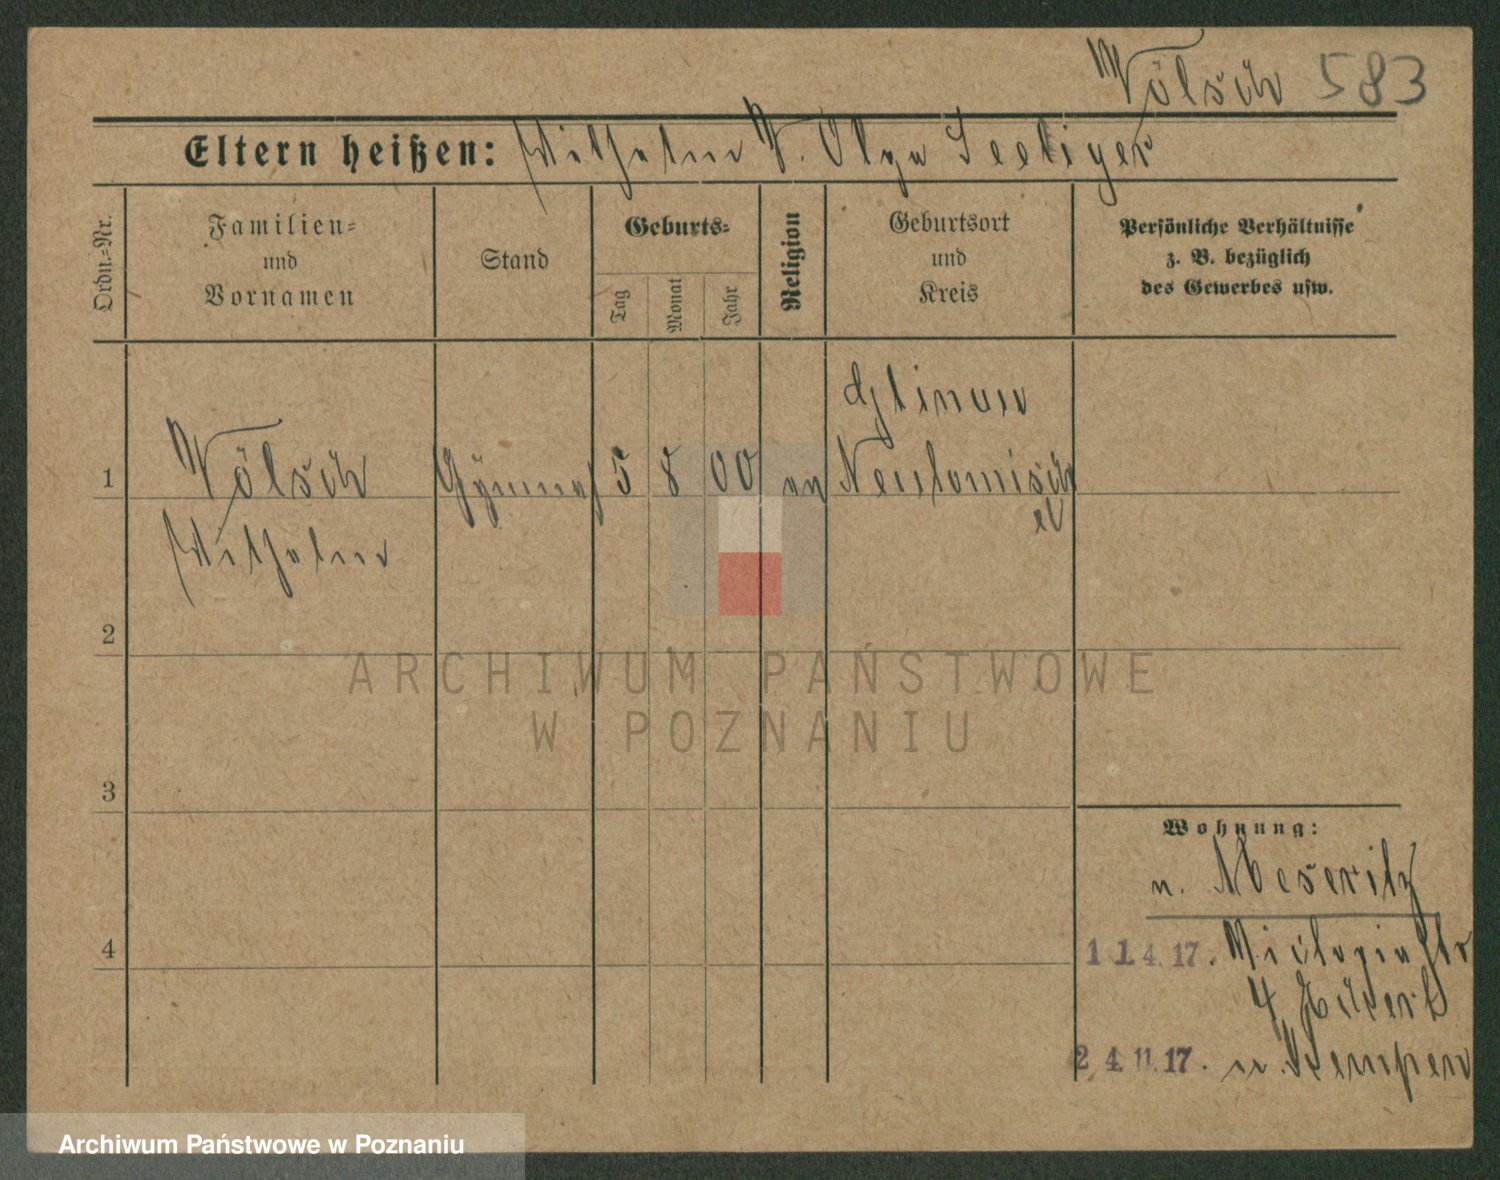 Völsch 583
Eltern heißen: Wilhelm V. Olga Seeliger
Ordn.=Nr.
Familien=
und
Vornamen
Stand
Geburts=
Tag
Monat
Jahr
Religion
Geburtsort
und
Kreis
Persönliche Verhältnisse
z. B. bezüglich
des Gewerbes usw.
Glinau
1 Völsch Gymnas 5 8 00 ev Neutomisch
el
Wilhelm
2
ARCHIWUM PAŃSTWOWE
W POZNANIU
3
Wohnung:
n. Meseritz
4
11.4.17. Victoriastr
4
24.11.17. n. Kempen
Archiwum Państwowe w Poznaniu